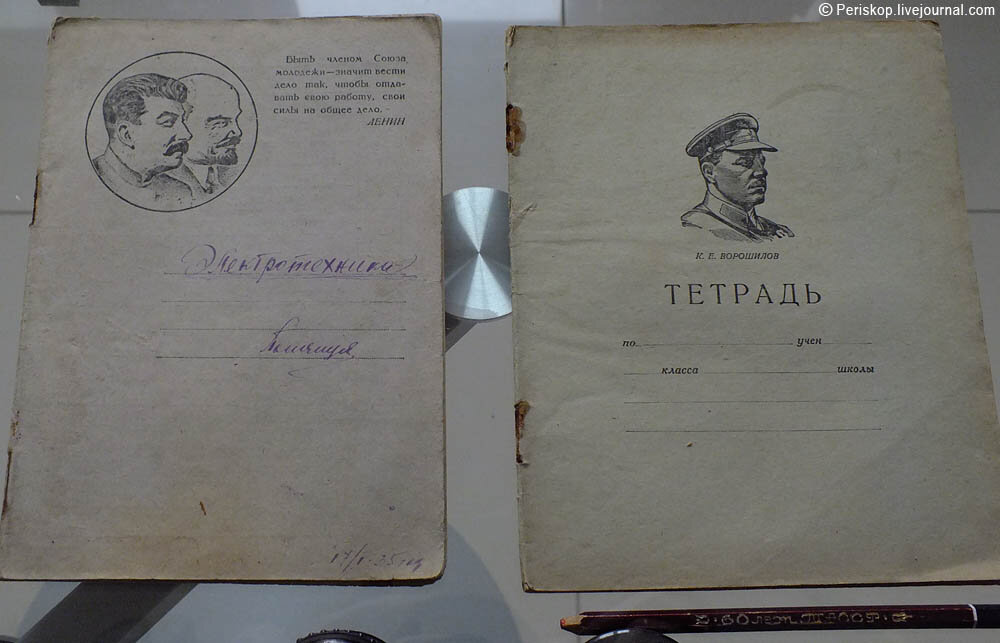 © Periskop.livejournal.com
Быть членом Союза
молодежи—значит вести
дело так, чтобы отда-
вать свою работу, свои
силы на общее дело.
ЛЕНИН
Электротехника
К. Е. ВОРОШИЛОВ
ТЕТРАДЬ
по учен
класса школы
60 лет